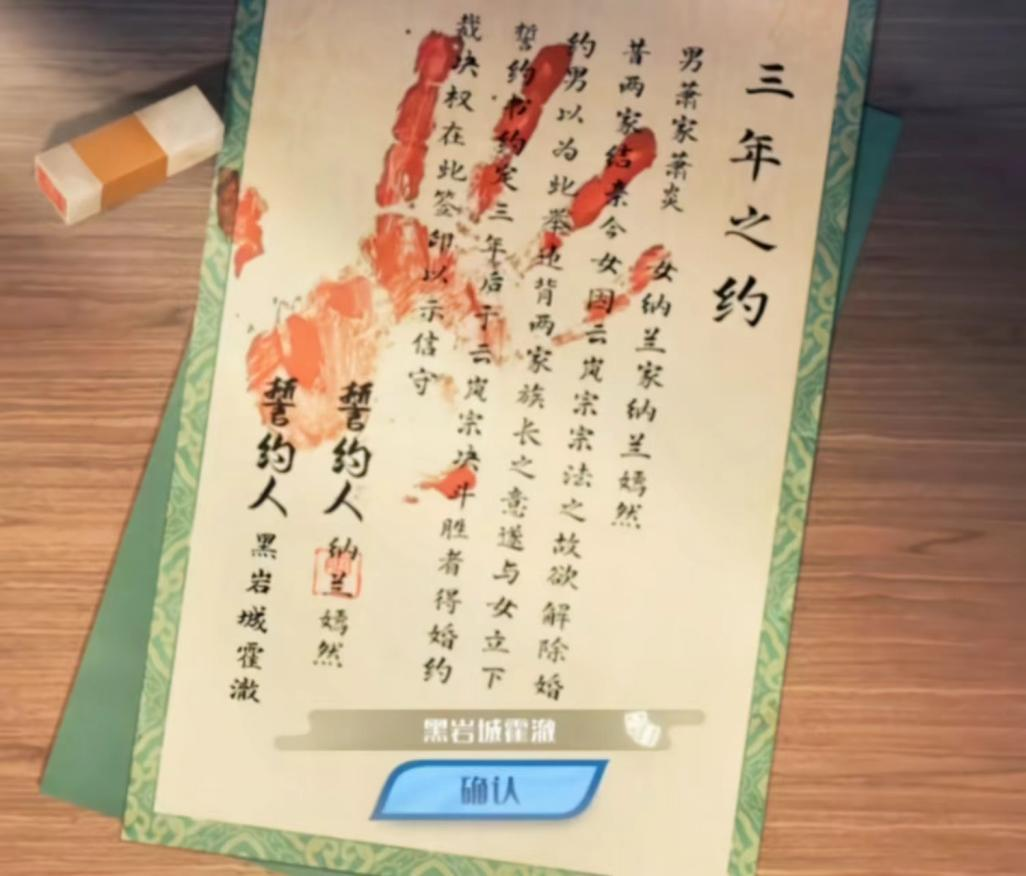 三年之约
男萧家萧炎 女纳兰家纳兰嫣然
昔两家结亲今女因云岚宗宗法之故欲解除婚
约男以为此举违背两家族长之意遂与女立下
誓约书约定三年后于云岚宗决斗胜者得婚约
裁决权在此签印以示信守
誓约人 纳兰嫣然
誓约人 黑岩城霍澈
黑岩城霍澈
确认